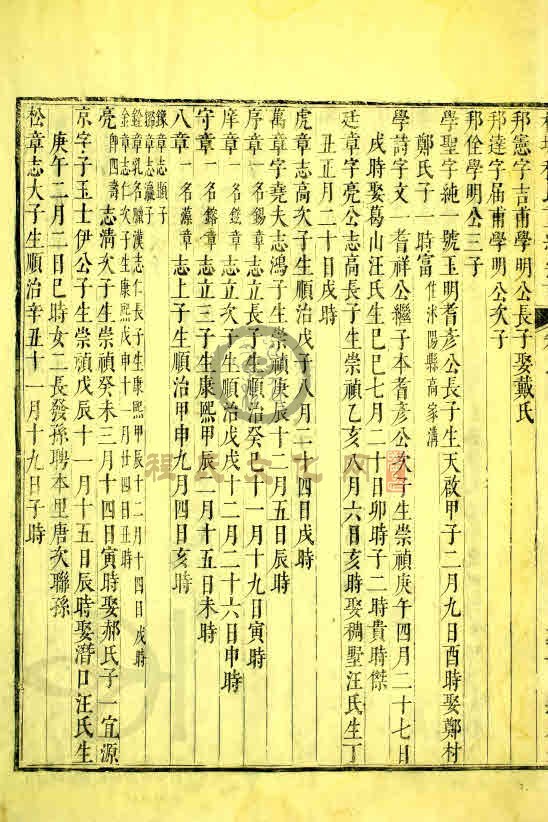 邦憲字吉甫學明公長子娶戴氏
邦達字届甫學明公次子
邦佺學明公三子
學聖字純一號玉明耆彦公長子生天啟甲子二月九日酉時娶鄭村
鄭氏子一時富隹沭陽縣高家溝
學詩字文一耆祥公繼子本耆彦公次子生崇禎庚午四月二十七日
戌時娶葛山汪氏生己巳七月二十日卯時子二時貴時傑
廷章字亮公志高長子生崇禎乙亥八月六日亥時娶稠墅汪氏生丁
丑正月二十日戌時
虎章志高次子生順治戊子八月二十四日戌時
萬章字堯夫志鴻子生崇禎庚辰十二月五日辰時
序章一名錫章志立長子生順治癸巳十一月十九日寅時
庠章一名鎧章志立次子生順治戊戌十二月二十六日申時
守章一名鎔章志立三子生康熙甲辰二月十五日未時
八章一名藻章志上子生順治甲申九月四日亥時
鍊章志顯子
鎦章志瀛子
鎧章乳名臘漢志仁長子生康熙甲辰十二月十四日戌時
金章志仁次子生康熙戊申十一月廿四日丑時
亮即四壽志清次子生崇禎癸未三月十四日寅時娶郝氏子一宜源
京字子玉士伊公子生崇禎戊辰十一月十五日辰時娶潛口汪氏生
庚午二月二日巳時女二長發孫聘本里唐次聯孫
松章志大子生順治辛丑十一月十九日子時
程氏文化网